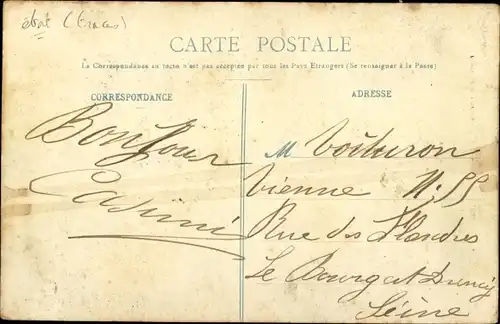 CARTE POSTALE
La Correspondance au recto n'est pas acceptée par tous les Pays Etrangers (Se renseigner à la Poste)
CORRESPONDANCE
ADRESSE
Bonjour
Casimir
M Voituron
Vienne N. 55
Rue des Flandres
Le Bourget Drancy
Seine